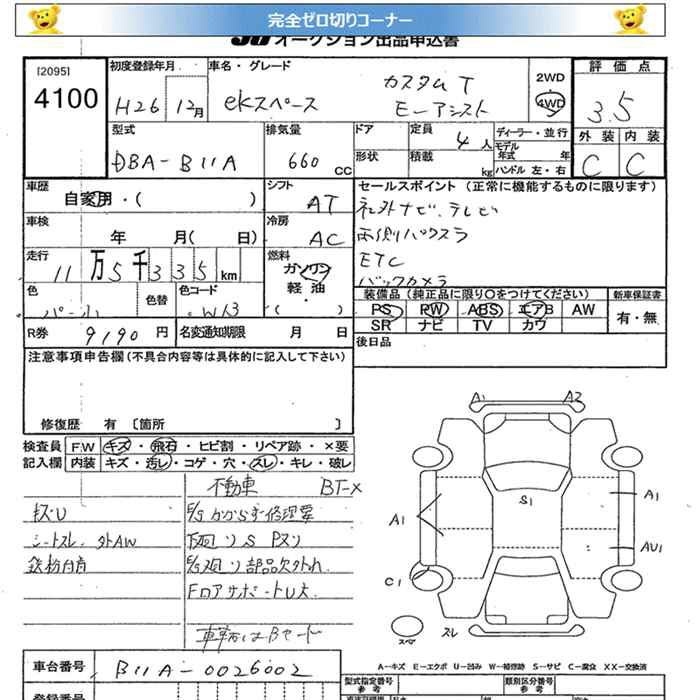 完全ゼロ切りコーナー
JU オークション出品申込書
[2095]
4100
初度登録年月
H26 12月
車名・グレード
ekスペース
カスタム T
E-アシスト
2WD
4WD
評価点
3.5
外装 内装
C C
型式
DBA-B11A
排気量
660 CC
ドア
形状
定員 4人
積載 kg
ディーラー・並行
モデル年式 年
ハンドル 左・右
車歴
自家用・( )
シフト AT
セールスポイント (正常に機能するものに限ります)
社外ナビ、テレビ
両側パワスラ
ETC
バックカメラ
車検
年 月( 日)
冷房 AC
走行
11万5千335km
燃料
ガソリン
軽油
( )
色
パール
色替
色コード
W13
装備品 (純正品に限り○をつけてください)
PS PW ABS エアB AW
SR ナビ TV カワ
新車保証書
有・無
R券 9190円
名変通知期限 月 日
後日品
注意事項申告欄(不具合内容等は具体的に記入して下さい)
修復歴 有 [箇所 ]
検査員記入欄
F.W キズ・飛石・ヒビ割・リペア跡・×要
内装 キズ・汚レ・コゲ・穴・スレ・キレ・破レ
不動車 BT-X
キズU
E/Sかからず修理要
シートスレ 外AW
下廻りS Pヌリ
鉄粉付着
E/G廻り部品欠外れ
FロアサポートU大
A1 A2
S1
A1
A1
AU1
C1
スペア
スレ
車台番号 B11A-0026002
A-キズ E-エクボ U-凹み W-補修跡 S-サビ C-腐食 XX-交換済
型式指定番号
参考
類別区分番号
参考
登録番号